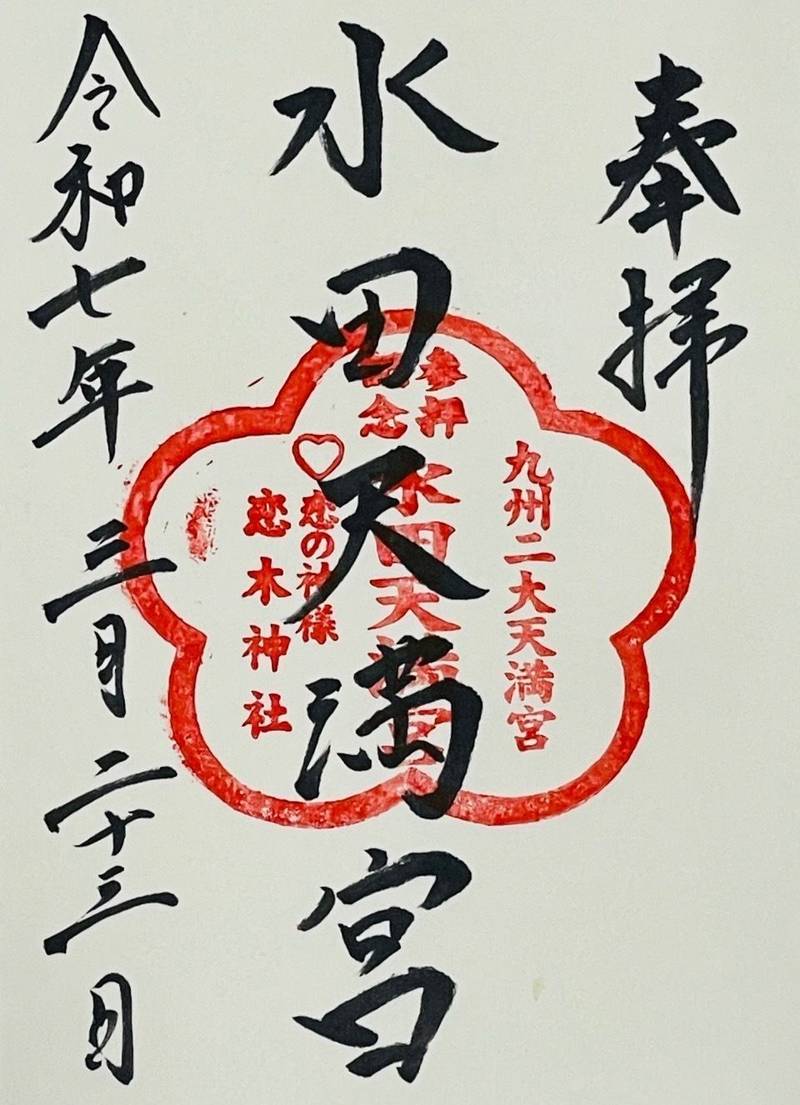 奉拝
水田天満宮
令和七年三月二十三日
九州二大天満宮
参拝
記念
水田天満宮
♡恋の神様
恋木神社